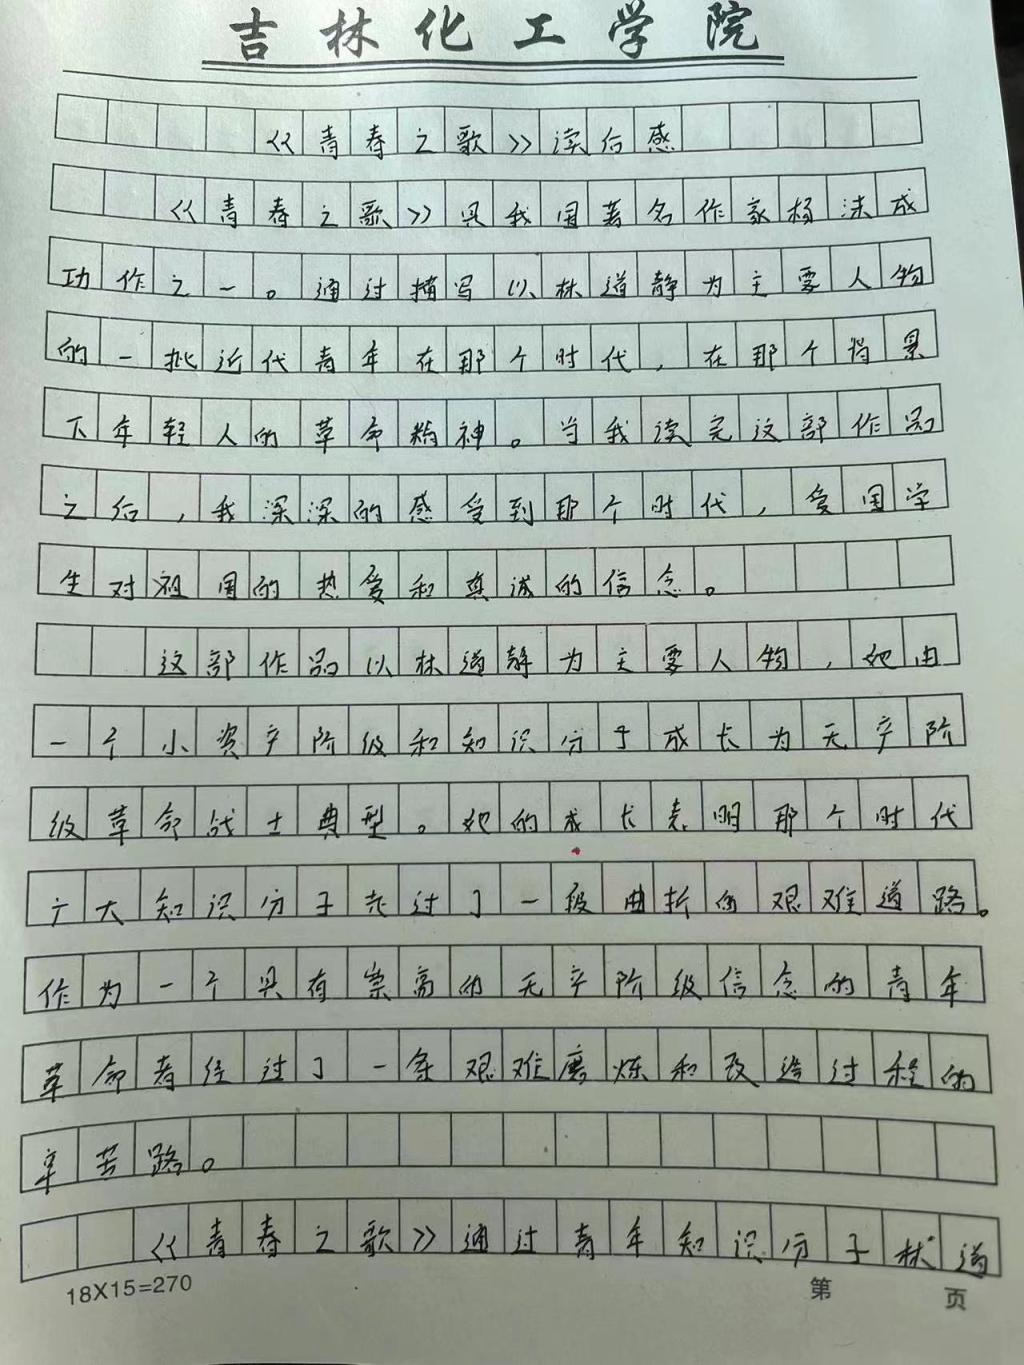 吉林化工学院
《青春之歌》读后感
《青春之歌》是我国著名作家杨沫成
功作之一。通过描写以林道静为主要人物
的一批近代青年在那个时代,在那个背景
下年轻人的革命精神。当我读完这部作品
之后,我深深的感受到那个时代,爱国学
生对祖国的热爱和真诚的信念。
这部作品以林道静为主要人物,她由
一个小资产阶级和知识分子成长为无产阶
级革命战士典型。她的成长表明那个时代
广大知识分子走过了一段曲折的艰难道路。
作为一个具有崇高的无产阶级信念的青年
革命者经过了一条艰难磨炼和改造过程的
辛苦路。
《青春之歌》通过青年知识分子林道
18X15=270
第 页